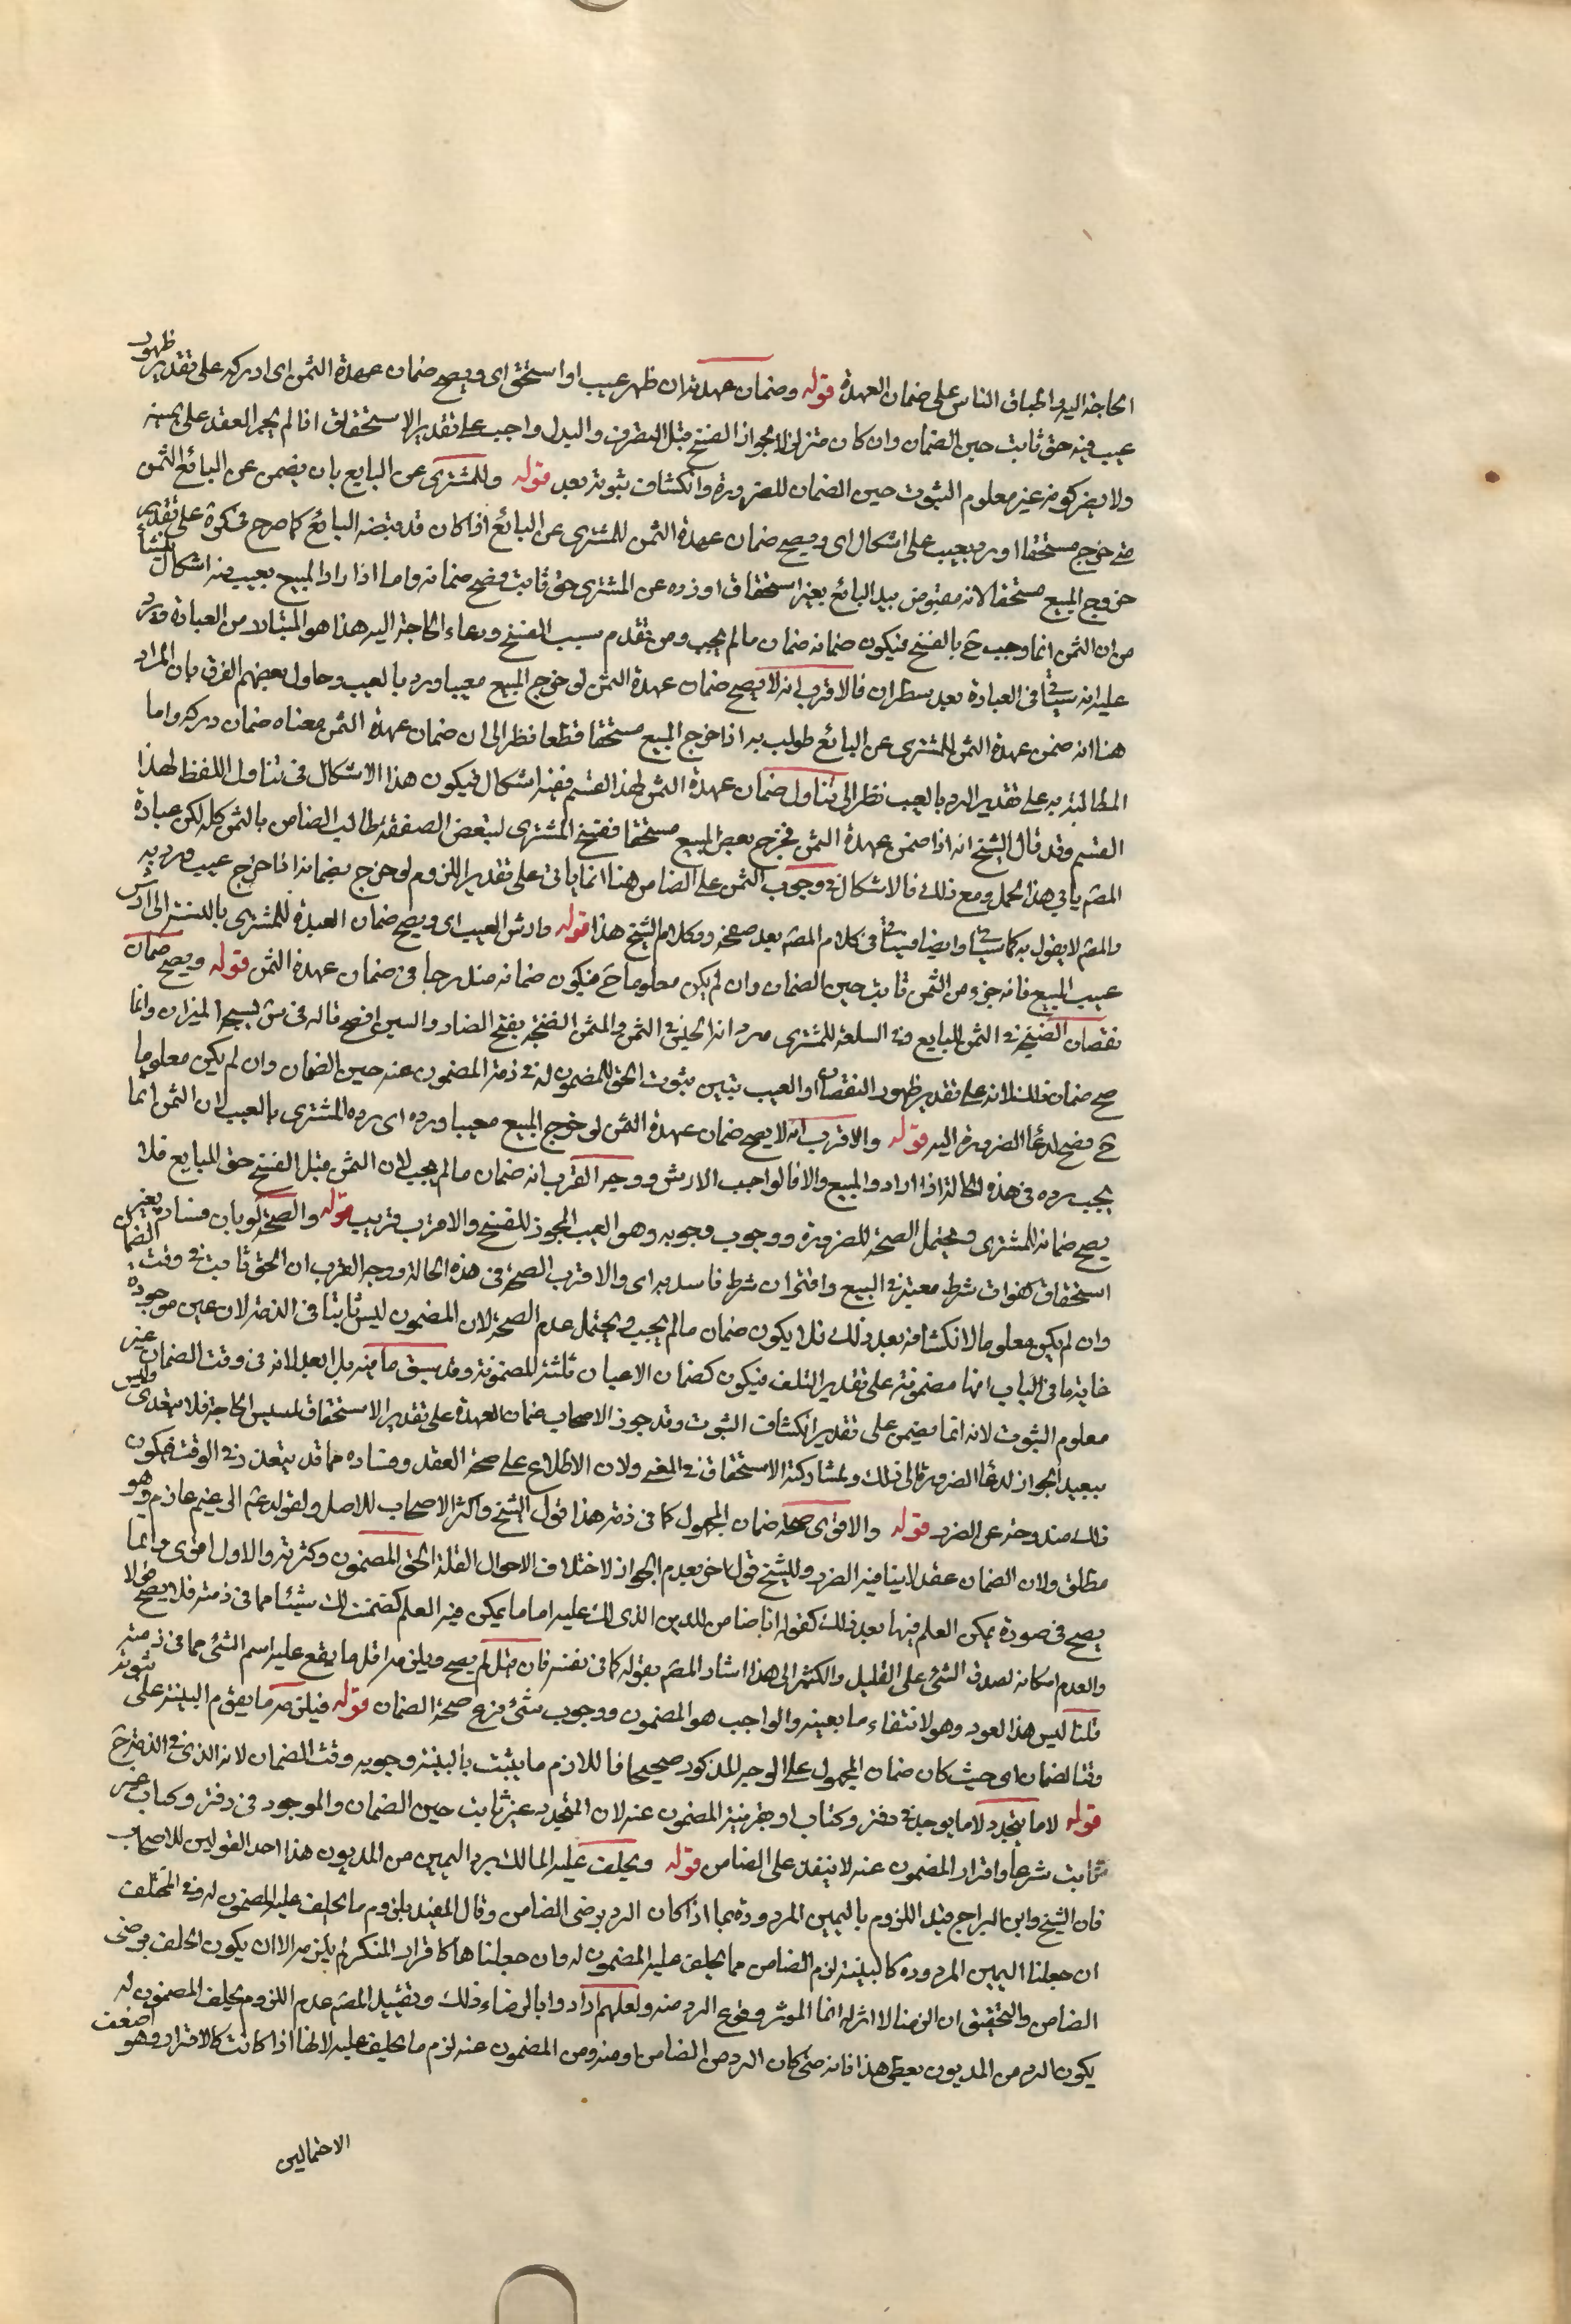 الحاجة اليه واطباق الناس على ضمان العهدة قوله وضمان عهدته ان ظهر عيب او استحق اى ويصح ضمان عهدة الثمن اى ادركه على تقدير ظهور
عيب فيه حق ثابت حين الضمان وان كان متزلزلا لجواز الفسخ قبل التصرف والبدل واجب على تقدير الاستحقاق اذا لم يجر العقد على عينه
ولا يضر كونه غير معلوم الثبوت حين الضمان للضرورة وانكشاف ثبوته بعد قوله وللمشترى عن البايع بان يضمن عن البائع الثمن
متى خرج مستحقا او رد بعيب على اشكال اى ويصح ضمان عهدة الثمن للمشترى عن البائع اذا كان قد قبضه البائع كما صرح فى كرة على تقدير
خروج المبيع مستحقا لانه مقبوض بيد البائع بغير استحقاق اوذوه عن المشترى حق ثابت فصح ضمانه واما اذا راد المبيع بعيب فيه اشكال ينشأ
من ان الثمن انما وجب ح بالفسخ فيكون ضمانه ضمان مالم يجب ومن تقدم سبب الفسخ ودعاء الحاجة اليه هذا هو المتبادر من العبادة ويرد
عليه انه سيأتى فى العبادة بعد سطران فالاقرب انه لا يصح ضمان عهدة الثمن لو خرج المبيع معيبا ورد بالعيب وحاول بعضهم الفرق بان المراد
هنا انه ضمن عهدة الثمن للمشترى عن البائع طولب به اذا خرج المبيع مستحقا قطعا نظرا الى ان ضمان عهدة الثمن معناه ضمان دركه واما
المطالبة به على تقدير الرد بالعيب نظرا الى تناول ضمان عهدة الثمن لهذا القسم ففيه اشكال فيكون هذا الاشكال فى تناول اللفظ لهذا
القسم وقد قال الشيخ انه اذا ضمن عهدة الثمن فخرج بعض المبيع مستحقا ففسخ المشترى لتبعض الصفقة طالب الضامن بالثمن كله لكن عبادة
المصه يابى هذا الحمل ومع ذلك فالاشكال فى وجوب الثمن على الضامن هنا انما ياتى على تقدير اللزوم لو خرج بضمانه اذا خرج عيب ورد به
والمصه لا يقول به كما سيأتى وايضا فسيأتى فى كلام المصه بعد صفحة وفكلام الشيخ هذا قوله وارش العيب اى ويصح ضمان العهدة للمشترى بالنسبة الى ارش
عيب المبيع فانه جزء من الثمن ثابت حين الضمان وان لم يكن معلوما ح فيكون ضمانه مندرجا فى ضمان عهدة الثمن قوله ويصح ضمان
نقصان الصنجة فى الثمن للبايع وفى السلعة للمشترى مراده الحنى فى الثمن والمثمن الصنجة بفتح الصاد والسين افصح قاله فى ش ليسجه الميزان وانما
صح ضمان ذلك لانه على تقدير ظهور النقصان او العيب يتبين ثبوت الحق للمضمون له فى ذمة المضمون عنه حين الضمان وان لم يكن معلوما
ح فصح لدعا الضرورة اليه قوله والاقرب انه لا يصح ضمان عهدة الثمن لو خرج المبيع معيبا ورده اى رده المشترى بالعيب لان الثمن انما
يجب رده فى هذه الحالة اذا اراد والمبيع والا فالواجب الارش ووجه القرب انه ضمان مالم يجب لان الثمن قبل الفسخ حق للبايع فلا
يصح ضمانه للمشترى ويحتمل الصحة للضرورة ووجوب وجوبه وهو العيب المجوز للفسخ والاقرب قريب قوله والصحة لو بان فساده بغير
استحقاق كفوات شرط معتبر فى البيع واقتران شرط فاسد به اى والاقرب الصحة فى هذه الحالة ووجه القرب ان الحق ثابت فى وقت الضمان
وان لم يكن معلوما لانكشافه بعد ذلك فلا يكون ضمان مالم يجب ويحتمل عدم الصحة لان المضمون ليس ثابتا فى الذمة لان عين موجودة
غاية ما فى الباب انها مضمونة على تقدير التلف فيكون كضمان الاعيان ثلثة المضمونة وقد سبق ما فيه بل ابعد لانه فى وقت الضمان غير
معلوم الثبوت لانه انما يضمن على تقدير انكشاف الثبوت وقد جوز الاصحاب ضمان العهدة على تقدير الاستحقاق لمسيس الحاجة فلا يتعدى وليس
ببعيد الجواز لدعا الضرورة الى ذلك ولمشاركة الاستحقاق فى المعنى ولان الاطلاع على صحة العقد وفساده مما قد يتعذر فى الوقت فيكون
ذلك مندوحة عن الضرر قوله والاقوى صحة ضمان المجهول كما فى ذمته هذا قول الشيخ واكثر الاصحاب للاصل ولقوله عم الزعيم غارم وهو
مطلق ولان الضمان عقد لا ينافيه الضرر وللشيخ قول اخر بعدم الجواز لاختلاف الاحوال القلة الحق المضمون وكثرته والاول اقوى وانما
يصح فى صورة يمكن العلم فيها بعد ذلك كقوله انا ضامن للدين الذى لك عليه اما ما يمكن فيه العلم كضمنت لك شيئا مما فى ذمته فلا يصح قولا
والعدم امكانه لصدق الشئ على القليل والكثير الى هذا اشار المصه بقوله كما فى نفسه فان قيل لم يصح ويلزمه اقل ما يقع عليه اسم الشئ مما فى ذمته
قلنا ليس هذا العود وهو لانتفاء ما بعينه والواجب هو المضمون ووجوب شئ فرع صحة الضمان قوله فيلزمه ما يقوم البينة على ثبوته
وقت الضمان اى حيث كان ضمان المجهول على الوجه المذكور صحيحا فاللازم ما يثبت بالبينة وجوبه وقت الضمان لانه الذى فى الذمة ح
قوله لا ما يتجدد لا ما يوجد فى دفتر وكتاب او بقرينة المضمون عنه لان المتجدد غير ثابت حين الضمان والموجود فى دفتر وكتاب غير
ثابت شرعا واقرار المضمون عنه لا ينفذ على الضامن قوله ويحلف عليه المالك برد اليمين من المديون هذا احد القولين للاصحاب
فان الشيخ وابن البراج قيد اللزوم باليمين المردودة بما اذا كان الرد برضى الضامن وقال المفيد بلزوم ما يحلف عليه المضمون له وفى المختلف
ان جعلنا اليمين المردودة كالبينة لزم الضامن مما يحلف عليه المضمون له وان جعلناها كاقرار المنكر لم يلزمه الا ان يكون الحلف برضى
الضامن والتحقيق ان الرضا لا اثر له انما الموثر وقوع الرد منه ولعلهم ارادوا بالرضاء ذلك وتقييد المصه عدم اللزوم بحلف المضمون له
يكون الرد من المديون يعطى هذا فانه متى كان الرد من الضامن او منه ومن المضمون عنه لزم ما يحلف عليه لانها اذا كانت كالاقرار وهو اضعف
الاحتمالين